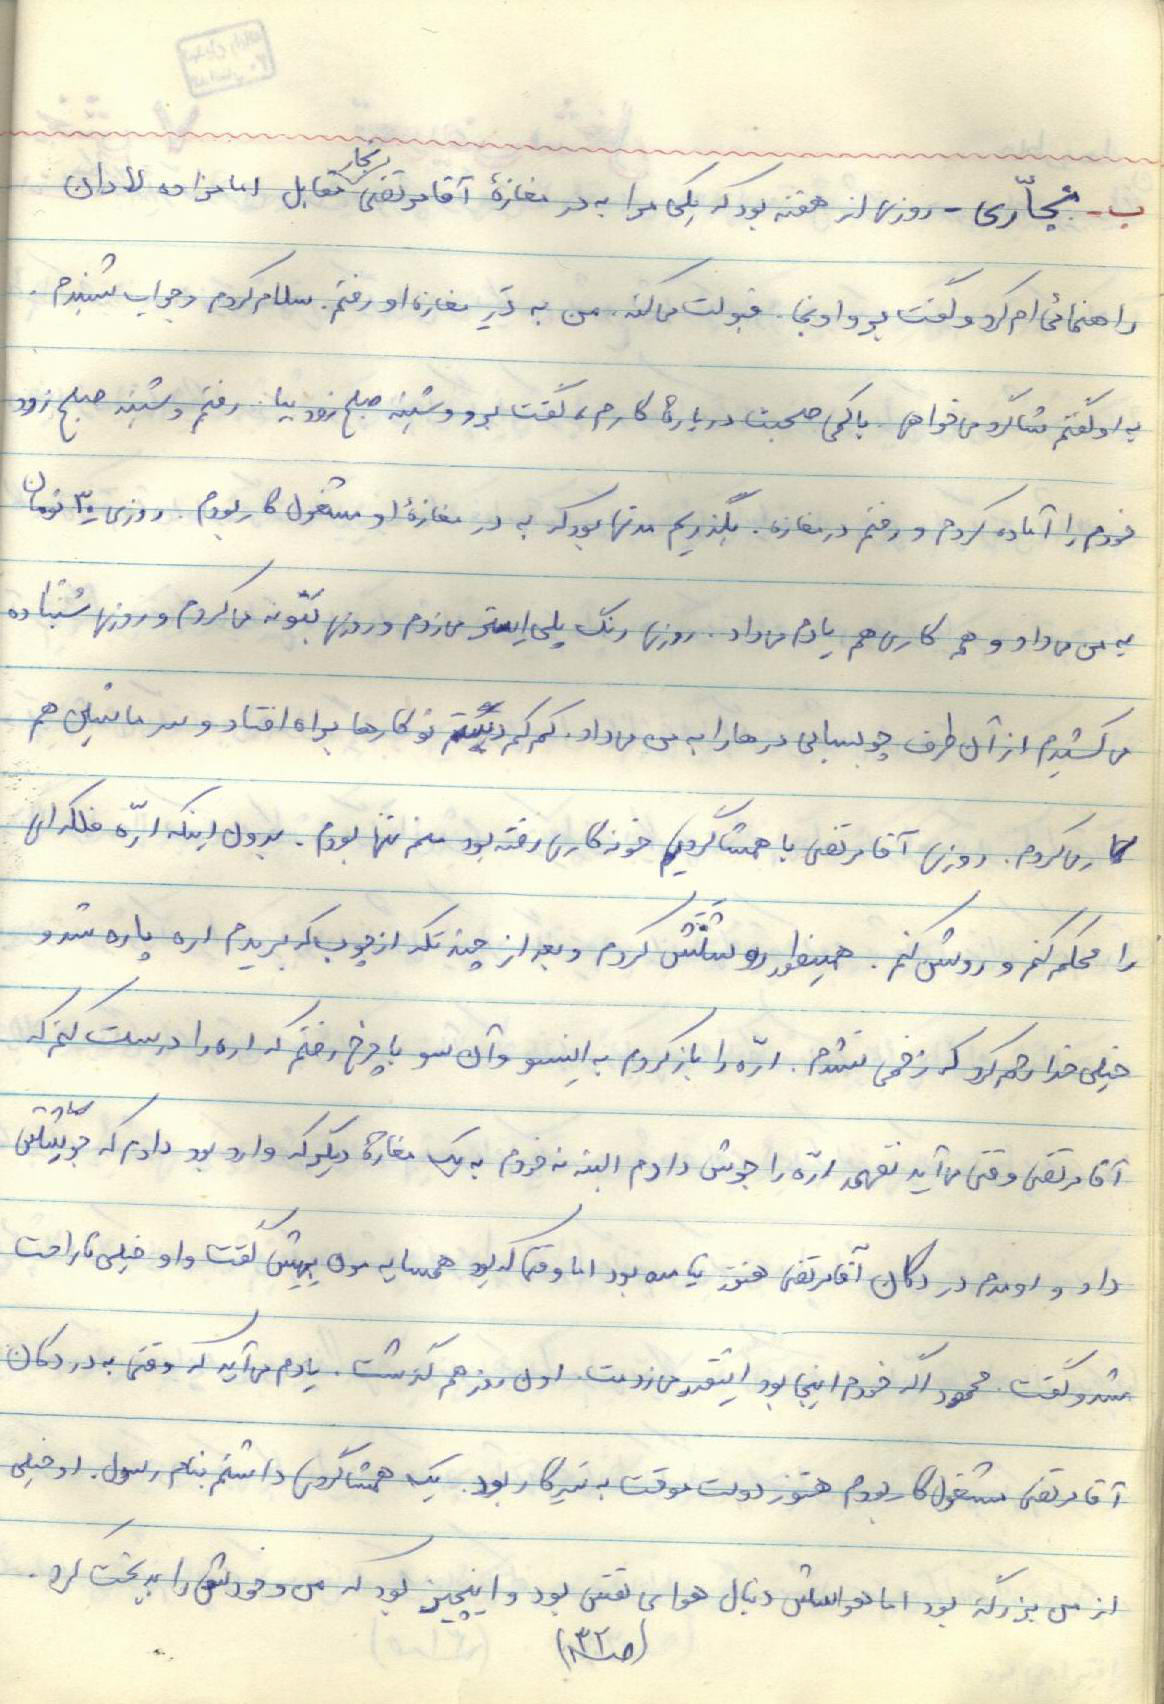 ب - نجّاری - روزی از هفته بود که یکی مرا به در مغازهٔ آقا مرتضی نجار مقابل امامزاده لادان
راهنمائی ام کرد و گفت برو اونجا. قبولت می‌کنه. من به در مغازه او رفتم. سلام کردم و جواب شنیدم.
به او گفتم شاگرد می‌خواهی. با کمی صحبت دربارهٔ کارم، گفت برو و شنبه صبح زود بیا. رفتم و شنبه صبح زود
خودم را آماده کردم و رفتم در مغازه. بگذریم مدتها بود که به در مغازهٔ او مشغول کار بودم. روزی ۳۰ تومان
به من می‌داد و هم کاری هم یادم می‌داد. روزی رنگ پلی‌استر می‌زدم و روزی بتونه می‌کردم و روزی سنباده
می‌کشیدم از آن طرف چوبسابی درها را به من می‌داد. کم کم دستم تو کارها براه افتاد و سر ماشین هم
کار می‌کردم. روزی آقا مرتضی با همشاگردیم خونه کاری رفته بود منم تنها بودم. بدون اینکه ارّه فلکه‌ای
را محکم کنم و روشن کنم. همینطور روشنش کردم و بعد از چند تکه از چوب که بریدم اره پاره شد و
خیلی خدا رحم کرد که زخمی نشدم. ارّه را باز کردم به اینسو و آن سو با چرخ رفتم که اره را درست کنم که
آقا مرتضی وقتی می‌آید نفهمد ارّه را جوش دادم البته نه خودم به یک مغازهٔ دیگر که وارد بود دادم که جوشش
داد و اومدم در دکان آقا مرتضی هنوز نیامده بود اما وقتی که بود همسایه مون بهش گفت و او خیلی ناراحت
شد و گفت. محمود اگه خودم اینجا بود اینقدر می‌زدمت. اون روز هم گذشت. یادم می‌آید که وقتی به در دکان
آقا مرتضی مشغول کار بودم هنوز دولت موقت به سر کار بود. یک همشاگردی داشتم بنام رسول. او خیلی
از من بزرگتر بود اما هواسش دنبال هوای نفس بود و اینچیز بود که من و خودش را بدبخت کرد.
(صـ ۳۲)